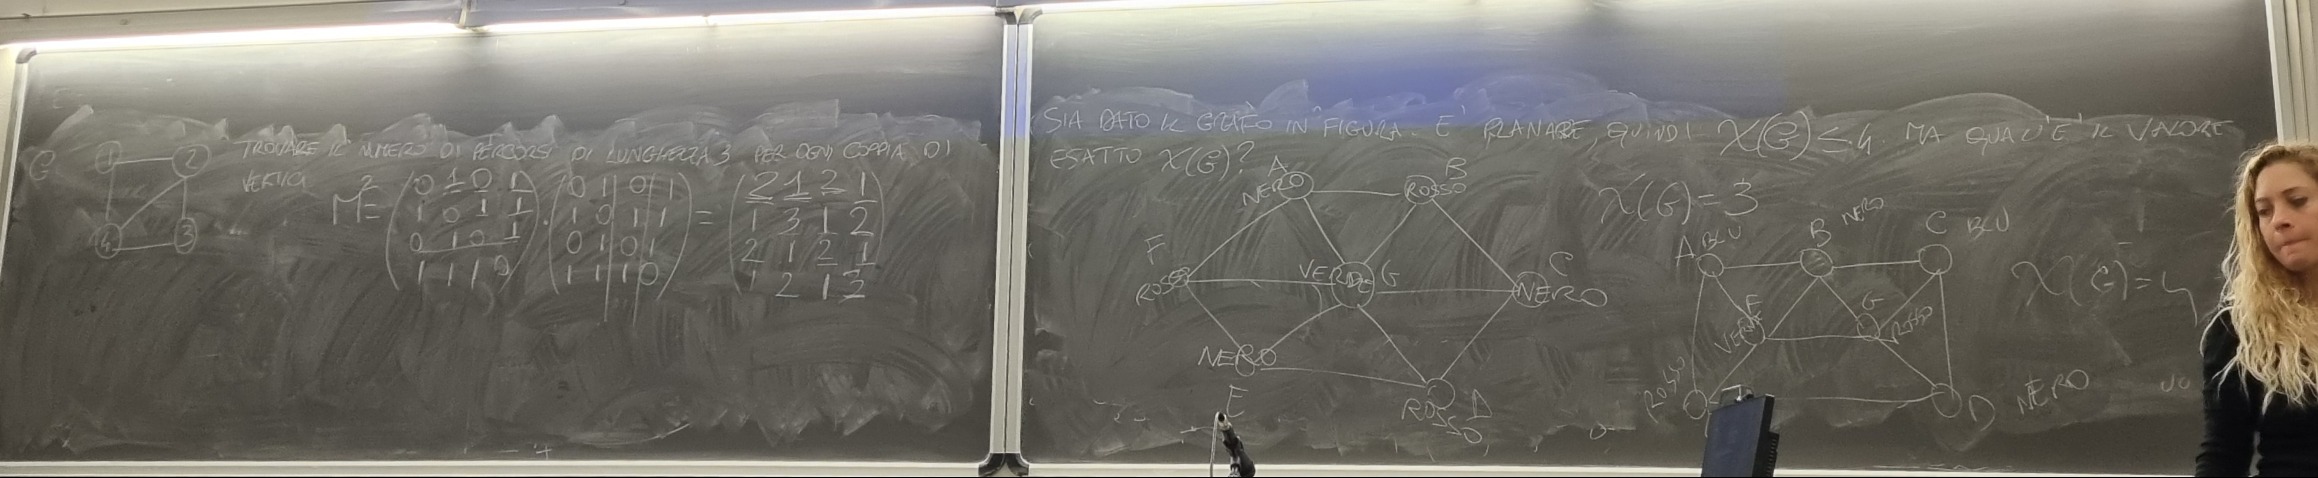 G 1 2 TROVARE IL NUMERO DI PERCORSI DI LUNGHEZZA 3 PER OGNI COPPIA DI
VERTICI
4 3
M² = (0 1 0 1) · (0 1 0 1) = (2 1 2 1)
(1 0 1 1) (1 0 1 1) (1 3 1 2)
(0 1 0 1) (0 1 0 1) (2 1 2 1)
(1 1 1 0) (1 1 1 0) (1 2 1 3)
SIA DATO IL GRAFO IN FIGURA. E' PLANARE, QUINDI χ(G) ≤ 4. MA QUAL'E' IL VALORE
ESATTO χ(G)?
A B
NERO ROSSO
F C
ROSSO VERDE G NERO
NERO
E ROSSO D
χ(G)=3
A BLU B NERO C BLU
F G
VERDE ROSSO
ROSSO D NERO
χ(G)=4